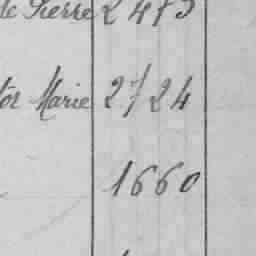 de Pierre 2475
tor Marie 2724
1660